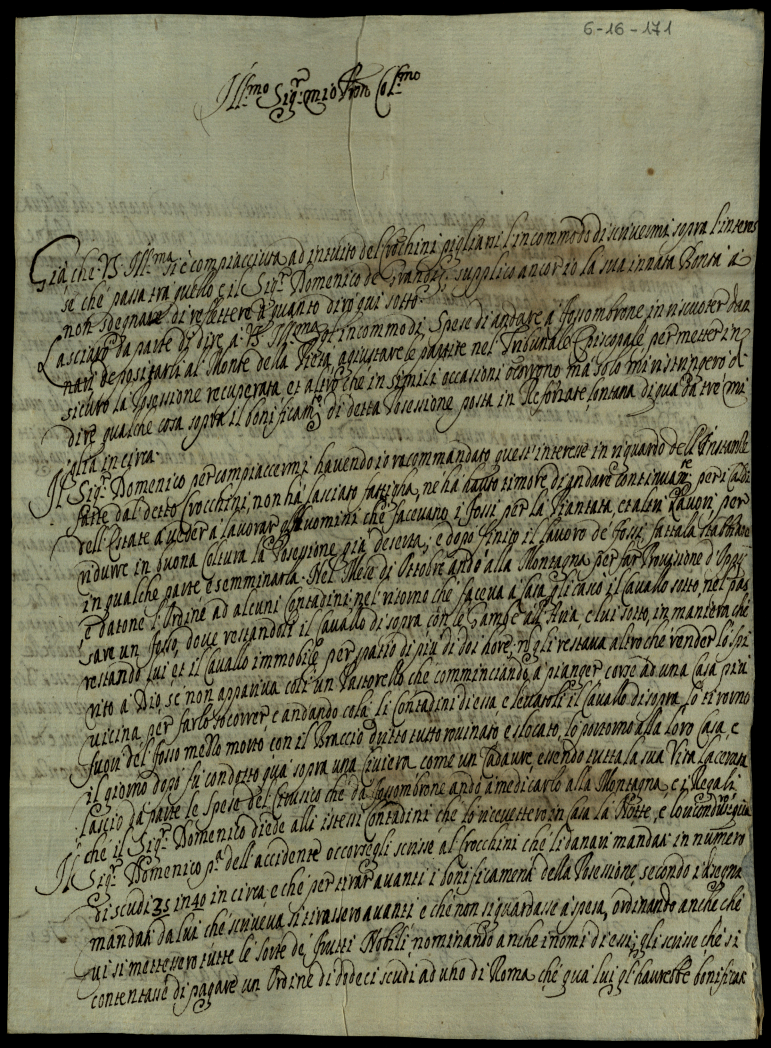 6-16-171
Ill.mo Sig.r mio Pron Col.mo
Già che VS Ill.ma si è compiacciuta ad intuito del Crochini pigliarsi l'incommodo di scrivermi sopra l'interes
se che passa tra questo e il Sig.r Domenico de Grandis, supplico ancor io la sua innata Bontà a
non sdegnare di reflettere a quanto dirò qui sotto.
Lasciarò da parte di dire a VS Ill.ma gl'incommodi, Spese di andare a fossombrone in riscuoter dan
nari depositarli al Monte della Pietà agiustare le partite nel Tribunale Episcopale per metter in
sicuro la Posessione recuperata, et altro che in simili occasioni occorrono, ma solo mi ristringerò a
dire qualche cosa sopra il bonificam.to di detta Posessione posta in Reforzate lontana di qua da tre mi
glia in circa.
Il Sig.r Domenico per compiaccermi havendo io raccommandato quest'interesse in riguardo dell'Instanze
fatte dal detto Crocchini, non ha lasciato fattigha, ne ha hauto timore di andare continuam.te per i Caldi
dell'Estate a veder a lavorar gl'huomini che facevano i fossi per la Piantata, et altri Lavori per
ridurre in buona coltura la Posessione già deserta; e dopo finito il lavoro de fossi fattala
in qualche parte e semminarla. Nel Mese di Ottobre andò alla Montagna per far Provisione d'Oppi
e datone l'Ordine ad alcuni Contadini nel ritorno che faceva a Casa gli cascò il Cavallo sotto, nel pas
sare un fosso, dove restandoli il Cavallo di sopra con le Gambe all'Aria e lui sotto, in maniera che
restando lui et il Cavallo immobile per spatio di più di doi hore, ne gli restava altro che render lo Spi
rito a Dio, se non appariva colì un Pastorello che comminciando a pianger corse ad una Casa più
vicina per farlo soccorrer e andando colà li Contadini di essa e levatoli il Cavallo di sopra, lo tirorno
fuori del fosso mezzo morto con il Braccio dritto tutto rovinato e slocato, lo portorno alla loro Casa, e
il giorno dopo fu condotto qua sopra una liviera come un Cadavere, essendo tutta la sua Vita lacerata
Lascio da parte le Spese del Cerusico che da fossombrone andò a medicarlo alla Montagna, e i Regali
che il Sig.r Domenico diede alli istessi Contadini che lo ricevettero in Casa la Notte, e lo qua
Il Sig.r Domenico p.a dell'accidente occorsegli scrisse al Crocchini che li danari mandati in numero
di scudi 35 in 40 in circa e che per tirar avanti i bonificamenti della Posessione secondo i disegni
mandati da lui che scriveva si tirassero avanti e che non si guardasse a spesa, ordinando anche che
vi si mettessero tutte le sorte de frutti Nobili, nominando anche i nomi di essi; gli scrisse che si
contentasse di pagare un Ordine di dodeci scudi ad uno di Roma che qua lui gl'haurebbe bonificati